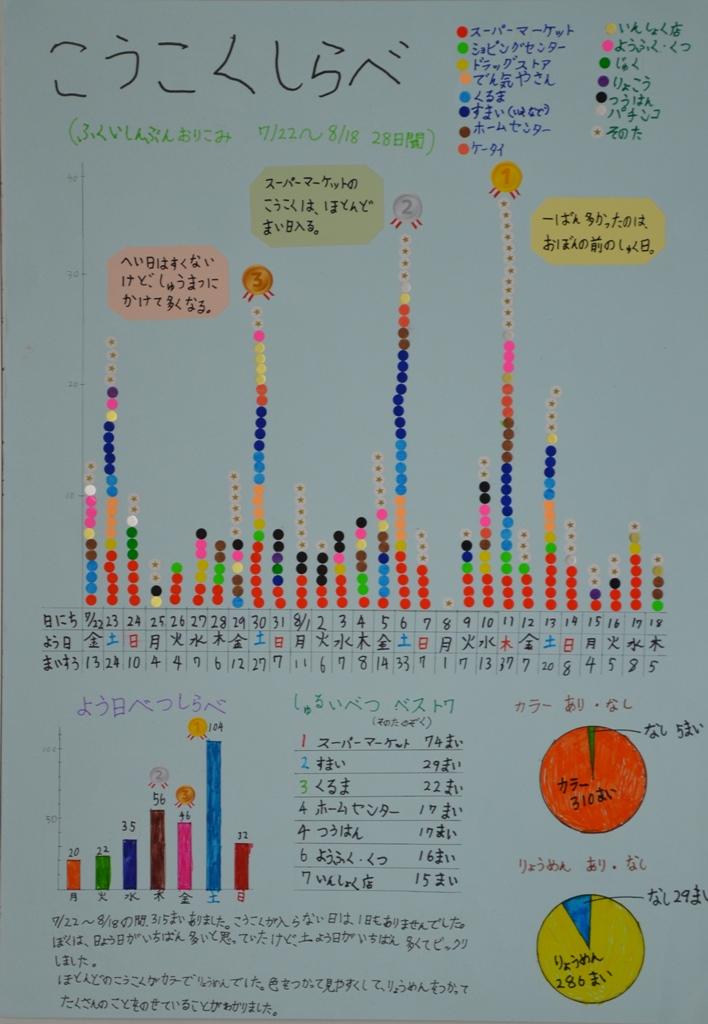 こうこくしらべ
(ふくいしんぶんおりこみ 7/22〜8/18 28日間)
スーパーマーケット
ショピングセンター
ドラッグストア
でん気やさん
くるま
すまい(いえなど)
ホームセンター
ケータイ
いんしょく店
ようふく・くつ
じゅく
りょこう
つうはん
パチンコ
そのた
40
30
20
10
へい日はすくない
けど、しゅうまつに
かけて多くなる。
3
スーパーマーケットの
こうこくは、ほとんど
まい日入る。
2
1
一ばん多かったのは、
おぼんの前のしゅく日。
日にち 7/22 23 24 25 26 27 28 29 30 31 8/1 2 3 4 5 6 7 8 9 10 11 12 13 14 15 16 17 18
よう日 金 土 日 月 火 水 木 金 土 日 月 火 水 木 金 土 日 月 火 水 木 金 土 日 月 火 水 木
まいすう 13 24 10 4 4 7 6 12 27 7 11 6 7 8 14 33 7 1 7 13 37 7 20 8 4 5 8 5
よう日べつしらべ
100
50
20 22 35 56 46 104 32
2 3 1
月 火 水 木 金 土 日
しゅるいべつ ベスト7
(そのたのぞく)
1 スーパーマーケット 74まい
2 すまい 29まい
3 くるま 22まい
4 ホームセンター 17まい
4 つうはん 17まい
6 ようふく・くつ 16まい
7 いんしょく店 15まい
カラー あり・なし
なし 5まい
カラー
310まい
りょうめん あり・なし
なし29まい
りょうめん
286まい
7/22〜8/18の間、315まいありました。こうこくが入らない日は、1日もありませんでした。
ぼくは、日よう日がいちばん多いと思っていたけど、土よう日がいちばん多くてビックリ
しました。
ほとんどのこうこくがカラーでりょうめんでした。色をつかって見やすくして、りょうめんをつかって
たくさんのことをのせていることがわかりました。